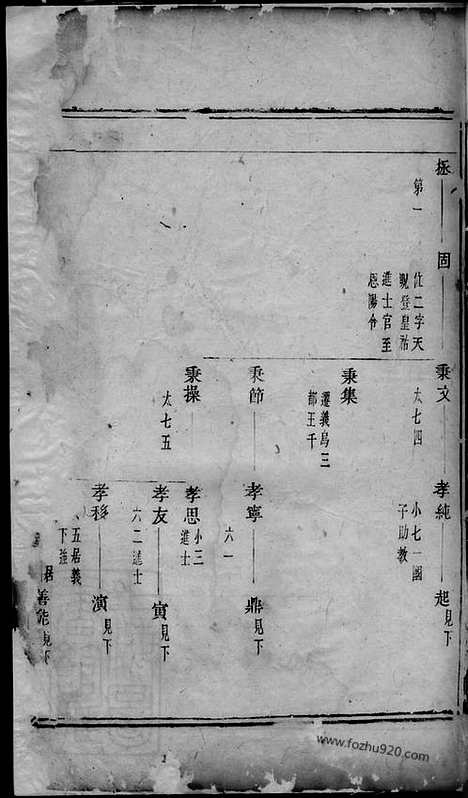 拯
第一
固
仕二字天
貺登皇祐
進士官至
恩陽令
秉文
太七四
孝純
小七一國
子助教
起見下
秉集
遷義烏三
都王千
秉節
孝寧
六一
鼎見下
秉操
太七五
孝思
小三
進士
孝友
六二進士
寅見下
孝移
五居義
下強
演見下
居
善能見下
www.fozhu920.com